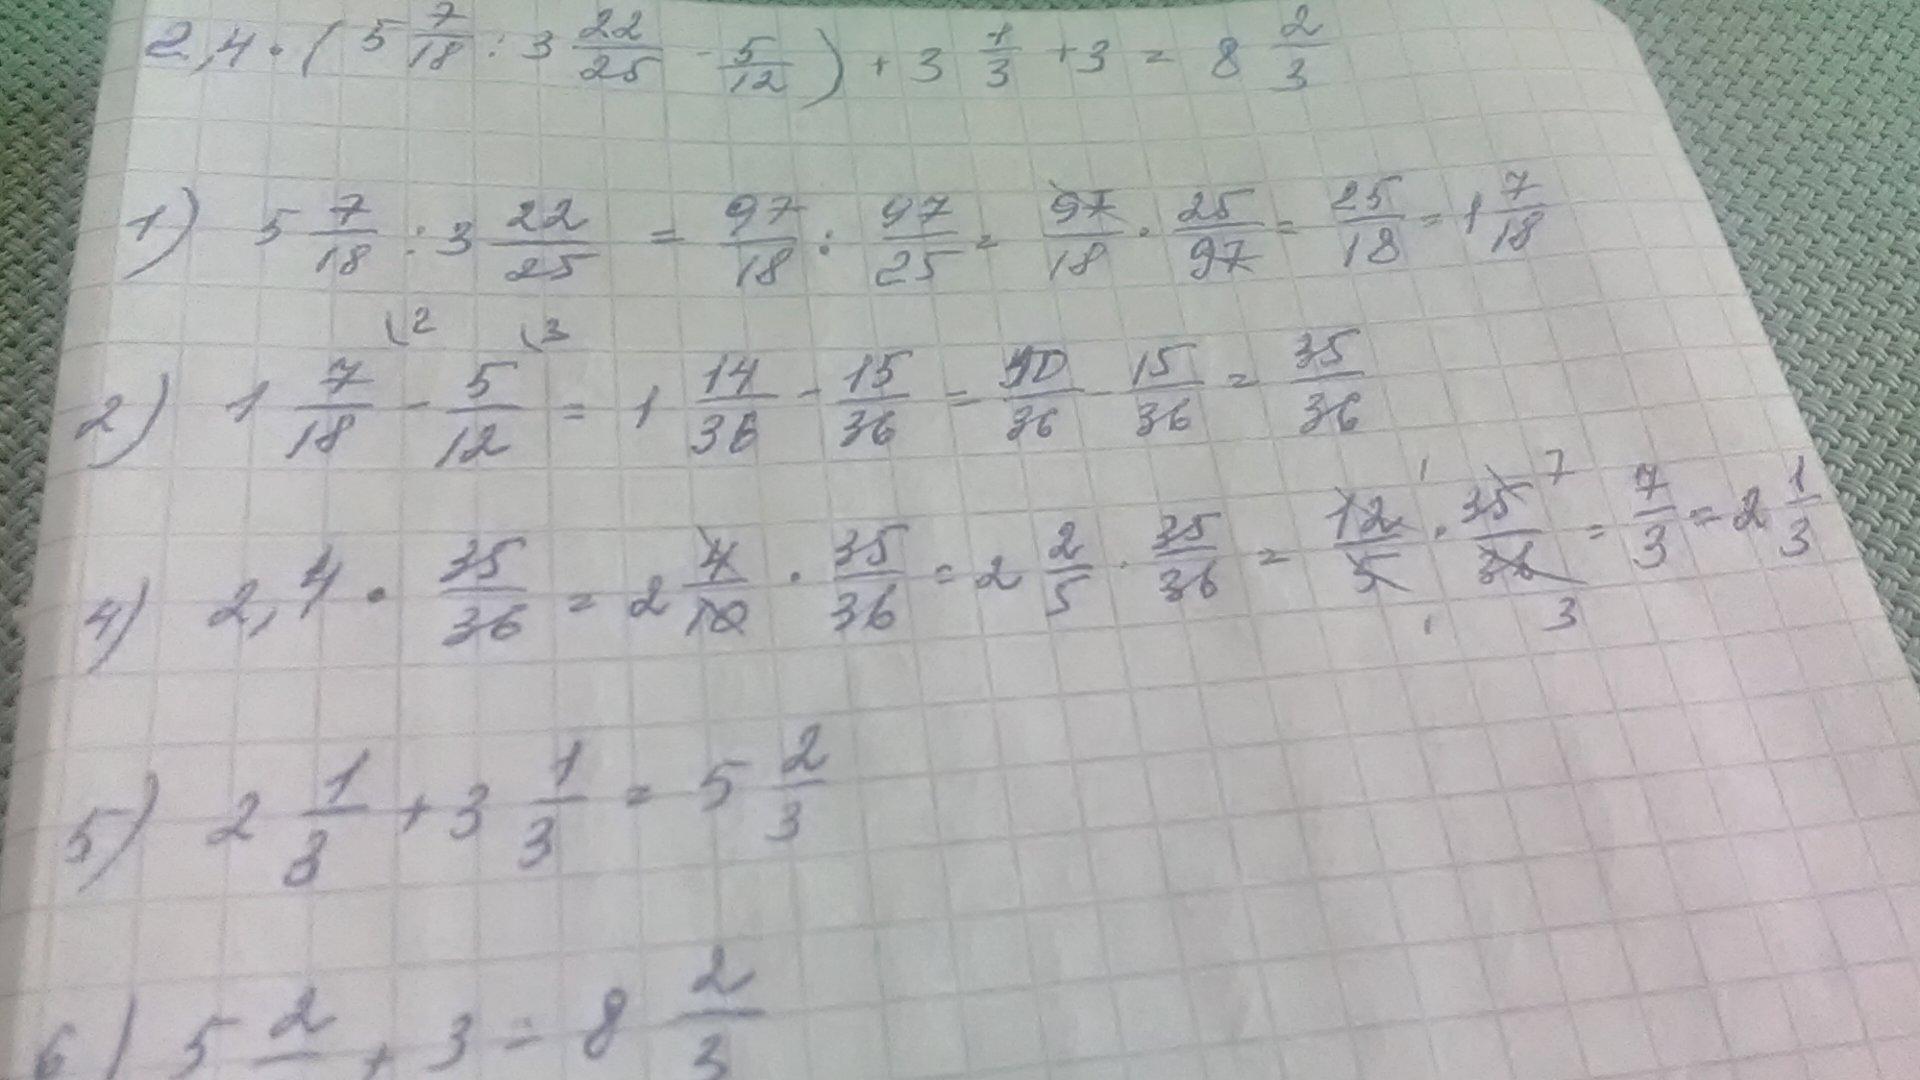 2,4 · (5 7/18 : 3 22/25 - 5/12) + 3 1/3 + 3 = 8 2/3
1) 5 7/18 : 3 22/25 = 97/18 : 97/25 = 97/18 · 25/97 = 25/18 = 1 7/18
2) 1 7/18 \2 - 5/12 \3 = 1 14/36 - 15/36 = 50/36 - 15/36 = 35/36
4) 2,4 · 35/36 = 2 4/10 · 35/36 = 2 2/5 · 35/36 = 12 1/5 1 · 35 7/36 3 = 7/3 = 2 1/3
5) 2 1/3 + 3 1/3 = 5 2/3
6) 5 2/ + 3 = 8 2/3